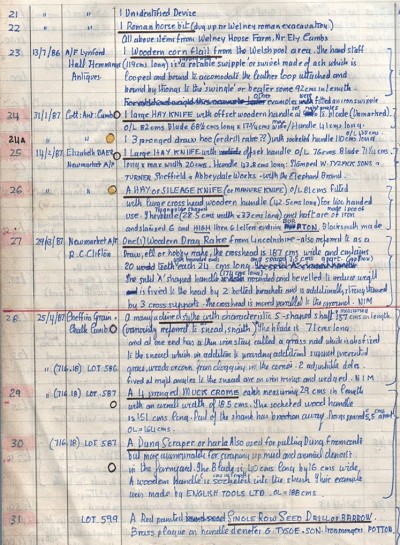 21 " " 1 Unidentified Device
22 " " 1 Roman horse bit (dug up nr Welney roman excavation)
All above items from Welney House Farm, Nr Ely Cambs
23 13/7/86 A/F Lynford 1 Wooden corn flail from the Welshpool area. The hand staff
Hall Hernmans (119 cms long) is a rotable swipple or swivel made of ash which is
Antiques looped and bound to accomodate the leather loop attached and
bound by thongs to the 'swingle' or beater some 92 cms in length.
examples were fitted an iron swipple
24 31/1/87 Cott: Ant: (Cambs) 1 large HAY KNIFE with offset wooden handle
O/L 82 cms Blade 68½ cms x 17¼ cms wide / Handle 41 cms long.
24A " " 1 3 pronged draw hoe (or drill rake ?) with socketed handle 120 cms long.
25 14/2/87 Elizabeth DAEB 1 Large HAY KNIFE with offset handle O/L 76 cms Blade 71½ cms
Newmarket A/F long x max width 20 cms. Handle 43.8 cms long. Stamped W. TYZACK SONS &
TURNER Sheffield & Abbeydale Works - with the Elephant Brand.
26 " " A HAY or SILEAGE KNIFE (or MANURE KNIFE) O/L 81 cms fitted
with large crosshead wooden handle (42.5 cms long) for two handed
use. The blade (28.5 cms width x 33 cms long) and half are of iron
and stamped G and HIGH BURTON. Blacksmith made
27 29/3/87 Newmarket A/F One (1) Wooden Drag Rake from Lincolnshire - also referred to as a
R.C. Clifton Draw, ell or hobby rake, the crosshead is 187 cms wide and contains
20 teeth each 24 cms long and spaced 7.5 cms apart (approx)
The split 'A' shaped handle is rounded and bevelled to reduce weight
and is fixed to the head by 2 bolted brackets and is additionally strengthened
by 3 cross supports. The crosshead is moved parallel to the ground. NIM
28 25/4/87 Cheffins Grain & A many sided scythe with characteristic S-shaped shaft 157 cms in length
Chalk Camb: (variously referred to snead, snaith). The blade is 71 cms long
and at one end has a thin wire stay called a grass nail which is also fixed
to the snead which in addition to providing additional support prevented
" (716.1B) LOT 586 grass, weeds or corn from clogging in the corner. 2 adjustable doles
fixed at right angles to the snead are on iron rings and wedged. NIM
29 " (716.1B) LOT 587 A 4 pronged MUCK CROME each measuring 29 cms in length
with an overall width of 18.5 cms. The socketed wood handle
is 151 cms long. Part of the shank has broken away. Prongs spaced 5.5 cms apart
OL = 161 cms.
30 (716.1B) LOT 587 A Dung Scraper or harle Also used for pulling Dung from carts
but more commonly for scraping up mud and animal deposit
in the farmyard. The Blade is 40 cms long by 16 cms wide,
A wooden handle is socketed into the shank. Their example
was made by ENGLISH TOOLS LTD. OL = 188 cms
31 LOT 599 A Red painted SINGLE ROW SEED DRILL or BARROW.
Brass plaque on handle denotes G. TYSOE & SON. Ironmongers POTTON